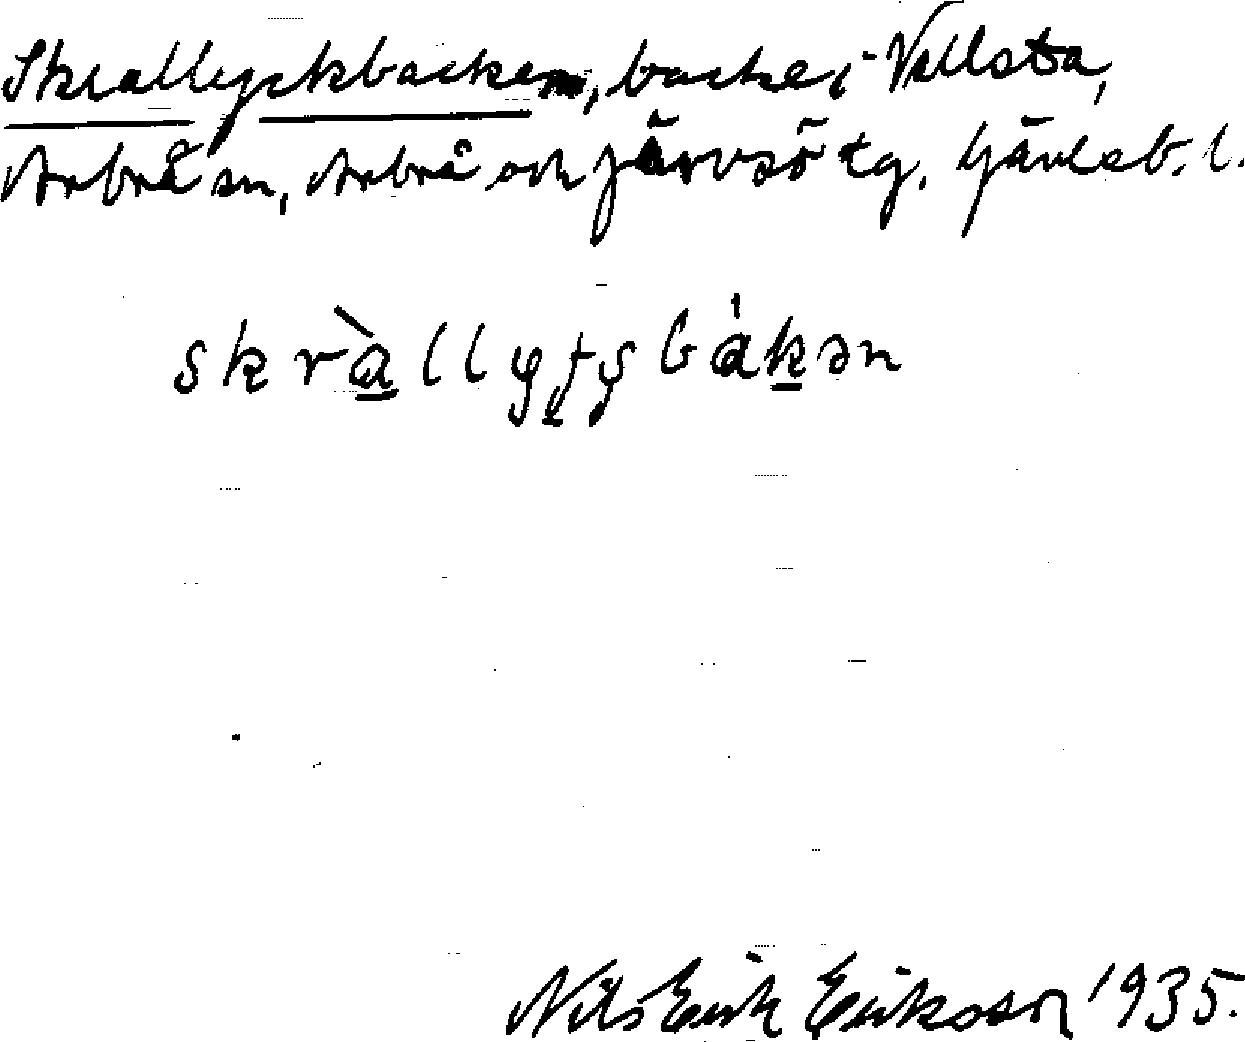 Skrallyckbacken, backe i Vallsta,
Arbrå sn, Arbrå och Järvsö tg, Gävleb. l.
skràllyʈʂbákən
Nils Erik Eriksson 1935.